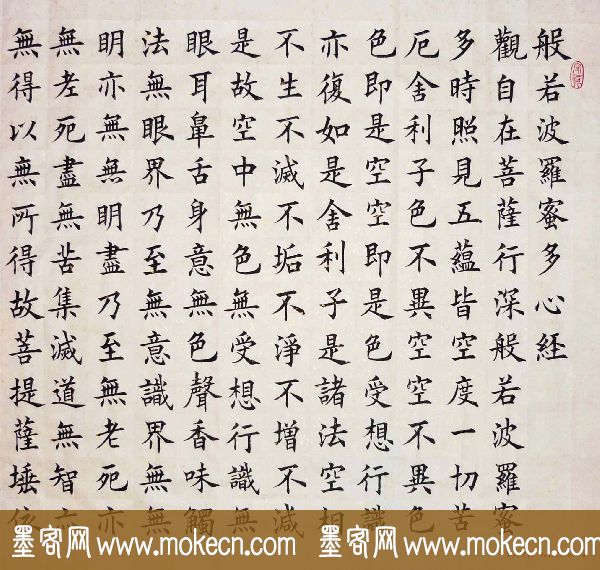 般若波羅蜜多心経
觀自在菩薩行深般若波羅蜜
多時照見五蘊皆空度一切苦
厄舍利子色不異空空不異色
色即是空空即是色受想行識
亦復如是舍利子是諸法空相
不生不滅不垢不淨不增不減
是故空中無色無受想行識無
眼耳鼻舌身意無色聲香味觸
法無眼界乃至無意識界無無
明亦無無明盡乃至無老死亦
無老死盡無苦集滅道無智亦
無得以無所得故菩提薩埵依
墨客网 www.mokecn.com 墨客网 www.mokecn.com